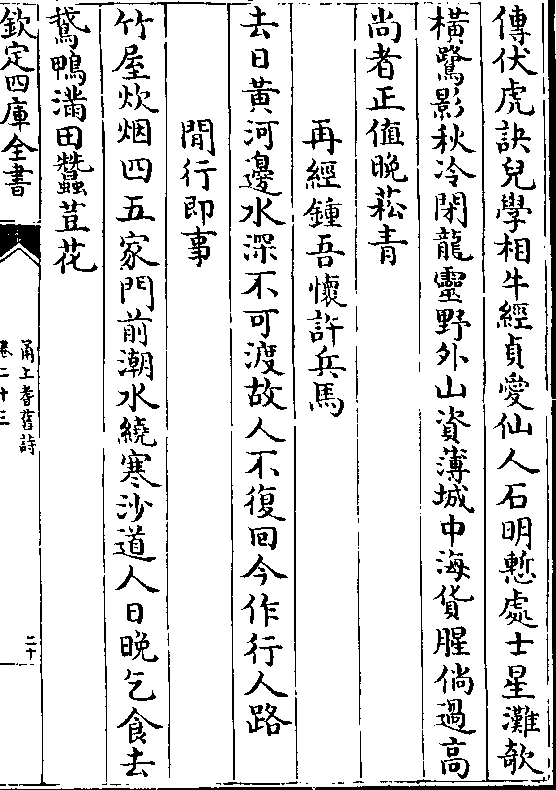 傳伏虎訣兒學相牛經貞愛仙人石明慙處士星灘欹
橫鷺影秋冷閉龍靈野外山資薄城中海貨腥倘過高
尚者正值晚菘青
再經鍾吾懷許兵馬
去日黃河邊水深不可渡故人不復回今作行人路
閒行即事
竹屋炊烟四五家門前潮水繞寒沙道人日晚乞食去
鵞鴨滿田蠶荳花
欽定四庫全書
甬上耆舊詩
卷二十三
二十